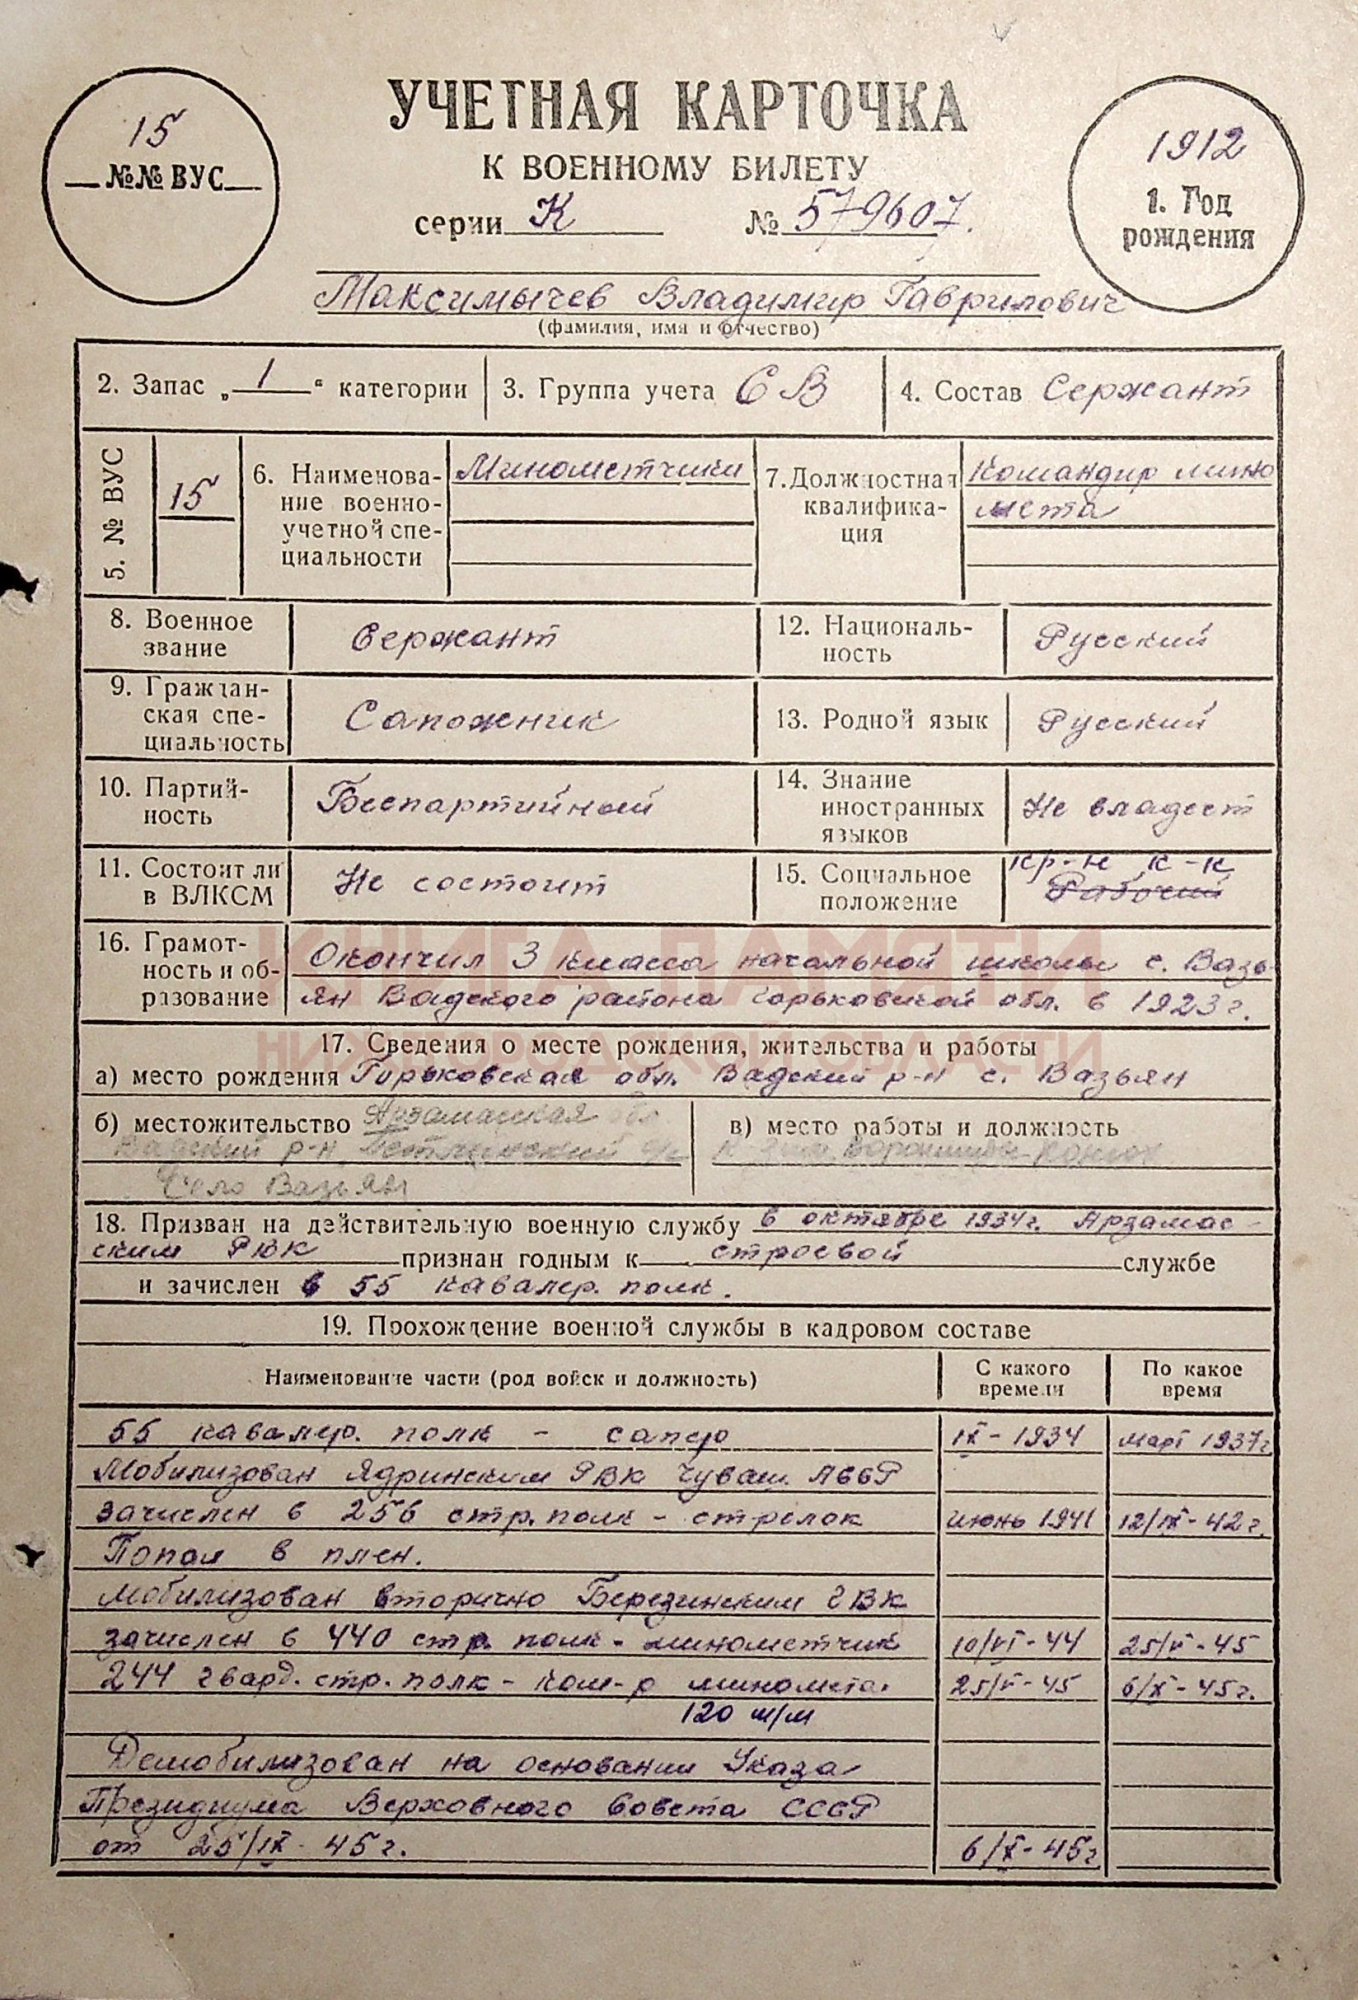 15
№№ ВУС
УЧЕТНАЯ КАРТОЧКА
К ВОЕННОМУ БИЛЕТУ
серии К № 579607.
1912
1. Год
рождения
Максимычев Владимир Гаврилович
(фамилия, имя и отчество)
2. Запас „ 1 “ категории
3. Группа учета СВ
4. Состав Сержант
5. № ВУС
15
6. Наименова-
ние военно-
учетной спе-
циальности
Минометчики
7. Должностная
квалифика-
ция
Командир мино
мета
8. Военное
звание
Сержант
12. Националь-
ность
Русский
9. Граждан-
ская спе-
циальность
Сапожник
13. Родной язык
Русский
10. Партий-
ность
Беспартийный
14. Знание
иностранных
языков
Не владеет
11. Состоит ли
в ВЛКСМ
Не состоит
15. Социальное
положение
кр-н к-к
Рабочий
16. Грамот-
ность и об-
разование
Окончил 3 класса начальной школы с. Вазь-
ян Вадского района Горьковской обл. в 1923 г.
КНИГА ПАМЯТИ
НИЖЕГОРОДСКОЙ ОБЛАСТИ
17. Сведения о месте рождения, жительства и работы
а) место рождения Горьковская обл. Вадский р-н с. Вазьян
б) местожительство Арзамасская обл.
Вадский р-н
Село Вазьян
в) место работы и должность
18. Призван на действительную военную службу в октябре 1934г. Арзамас-
ским РВК признан годным к строевой службе
и зачислен в 55 кавалер. полк.
19. Прохождение военной службы в кадровом составе
Наименование части (род войск и должность)
С какого
времени
По какое
время
55 кавалер. полк - сапер IX - 1934 март 1937г
Мобилизован Ядринским РВК Чуваш. АССР
зачислен в 256 стр. полк - стрелок июнь 1941 12/IX - 42 г.
Попал в плен.
Мобилизован вторично Березинским РВК
зачислен в 440 стр. полк - минометчик 10/VI - 44 25/V - 45
244 гвард. стр. полк - ком-р миномета 25/V - 45 6/X - 45г.
120 м/м
Демобилизован на основании Указа
Президиума Верховного Совета СССР
от 25/IX - 45 г. 6/X - 45г